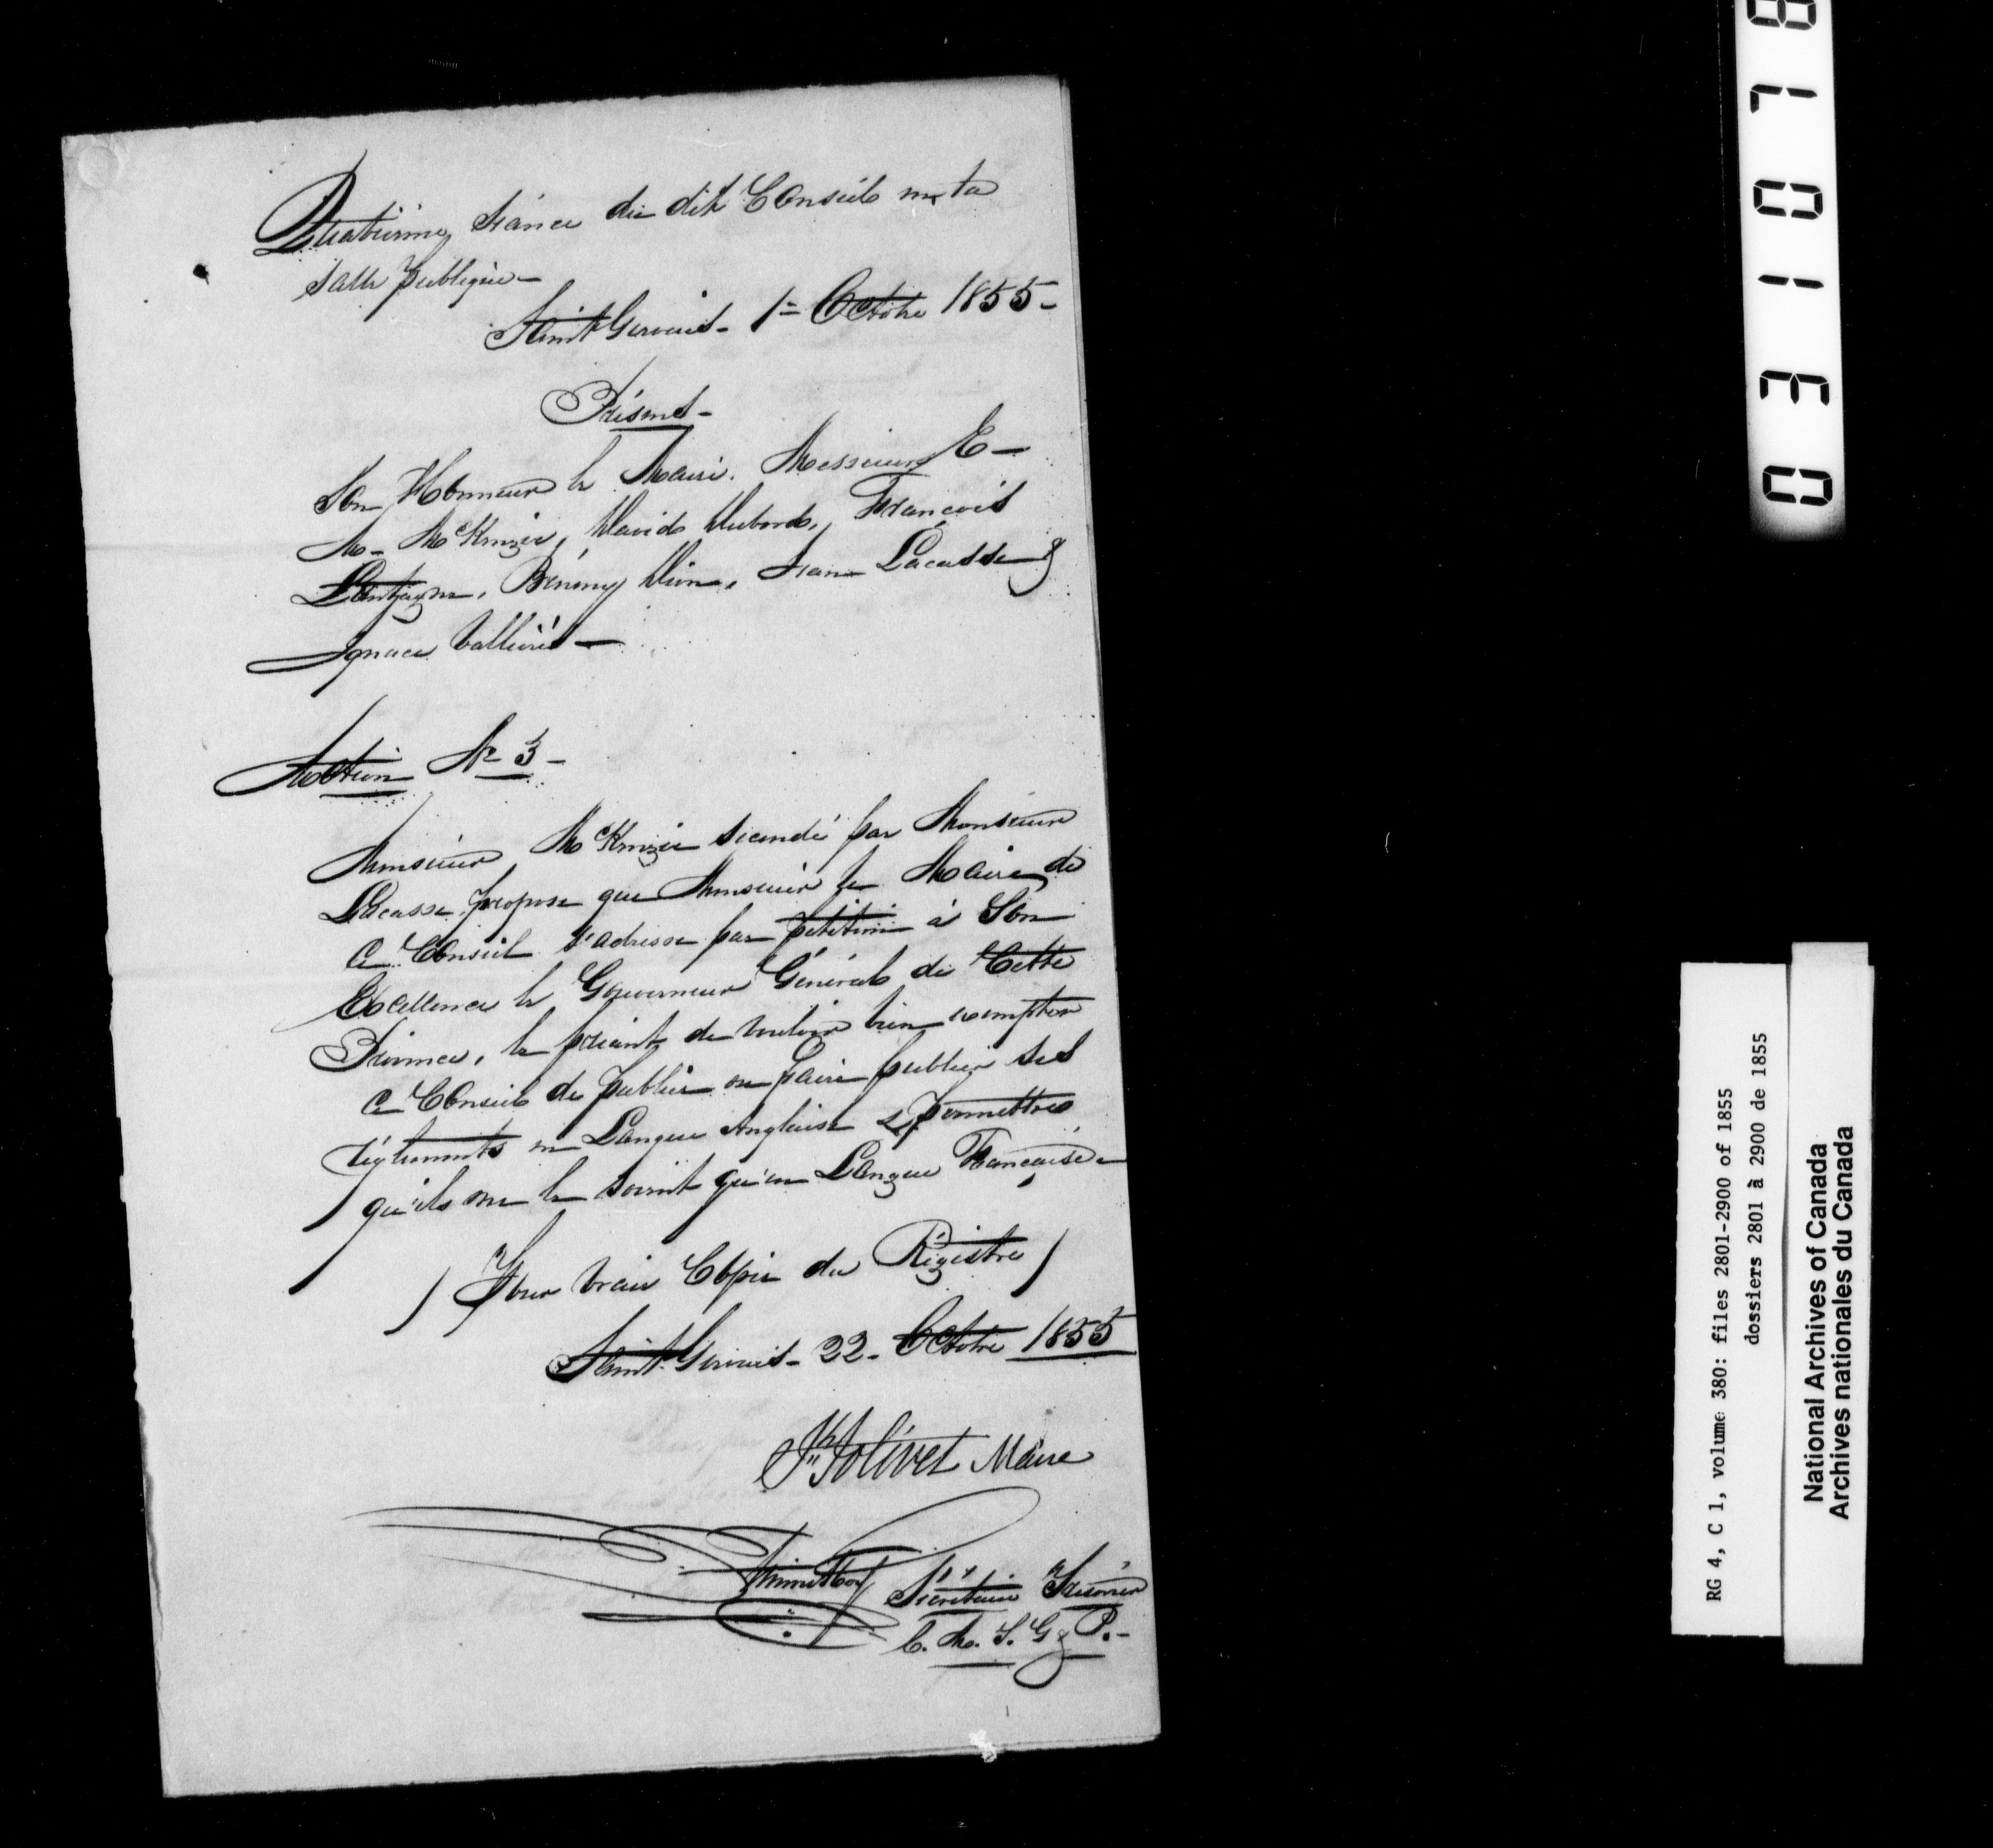 Quatrième séance du dit Conseil en la
salle publique —
Saint Gervais — 1er Octobre 1855 —
Présents —
Son Honneur le Maire. Messieurs E —
M. McKenzie, David Dubord, François
Lantagne, Bénony Dion, Jean Lacasse &
Ignace Vallières —
Motion No 3 —
Monsieur McKenzie secondé par Monsieur
Lacasse propose que Monsieur le Maire de
ce Conseil s'adresse par pétition à Son
Excellence le Gouverneur Général de Cette
Province, le priant de vouloir bien exempter
ce Conseil de publier ou faire publier ses
règlements en Langue Anglaise & permettre
qu'ils ne le soient qu'en Langue Française —
/ Pour vraie Copie du Régistre /
Saint Gervais — 22 — Octobre 1855
Jolivet Maire
Secrétaire Trésorier
C. M. S. G. P. —
0310178
RG 4, C 1, volume 380: files 2801-2900 of 1855
dossiers 2801 à 2900 de 1855
National Archives of Canada
Archives nationales du Canada